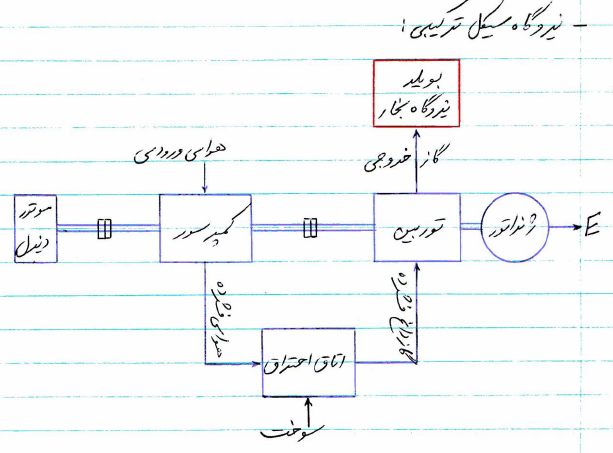 - نیروگاه سیکل ترکیبی:
بویلر
نیروگاه بخار
هوای ورودی
گاز خروجی
موتور
دیزل
کمپرسور
توربین
ژنراتور
E
هوای فشرده
اتاق احتراق
سوخت